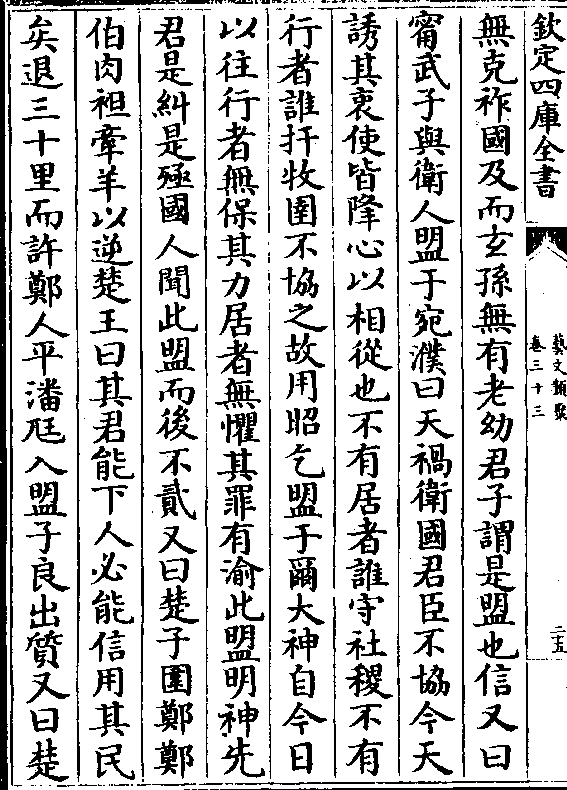 欽定四庫全書
藝文類聚
卷三十三
二五
無克祚國及而玄孫無有老幼君子謂是盟也信又曰
甯武子與衛人盟于宛濮曰天禍衛國君臣不協今天
誘其衷使皆降心以相從也不有居者誰守社稷不有
行者誰扞牧圉不協之故用昭乞盟于爾大神自今日
以往行者無保其力居者無懼其罪有渝此盟明神先
君是糾是殛國人聞此盟而後不貳又曰楚子圍鄭鄭
伯肉袒牽羊以逆楚王曰其君能下人必能信用其民
矣退三十里而許鄭人平潘尫入盟子良出質又曰楚